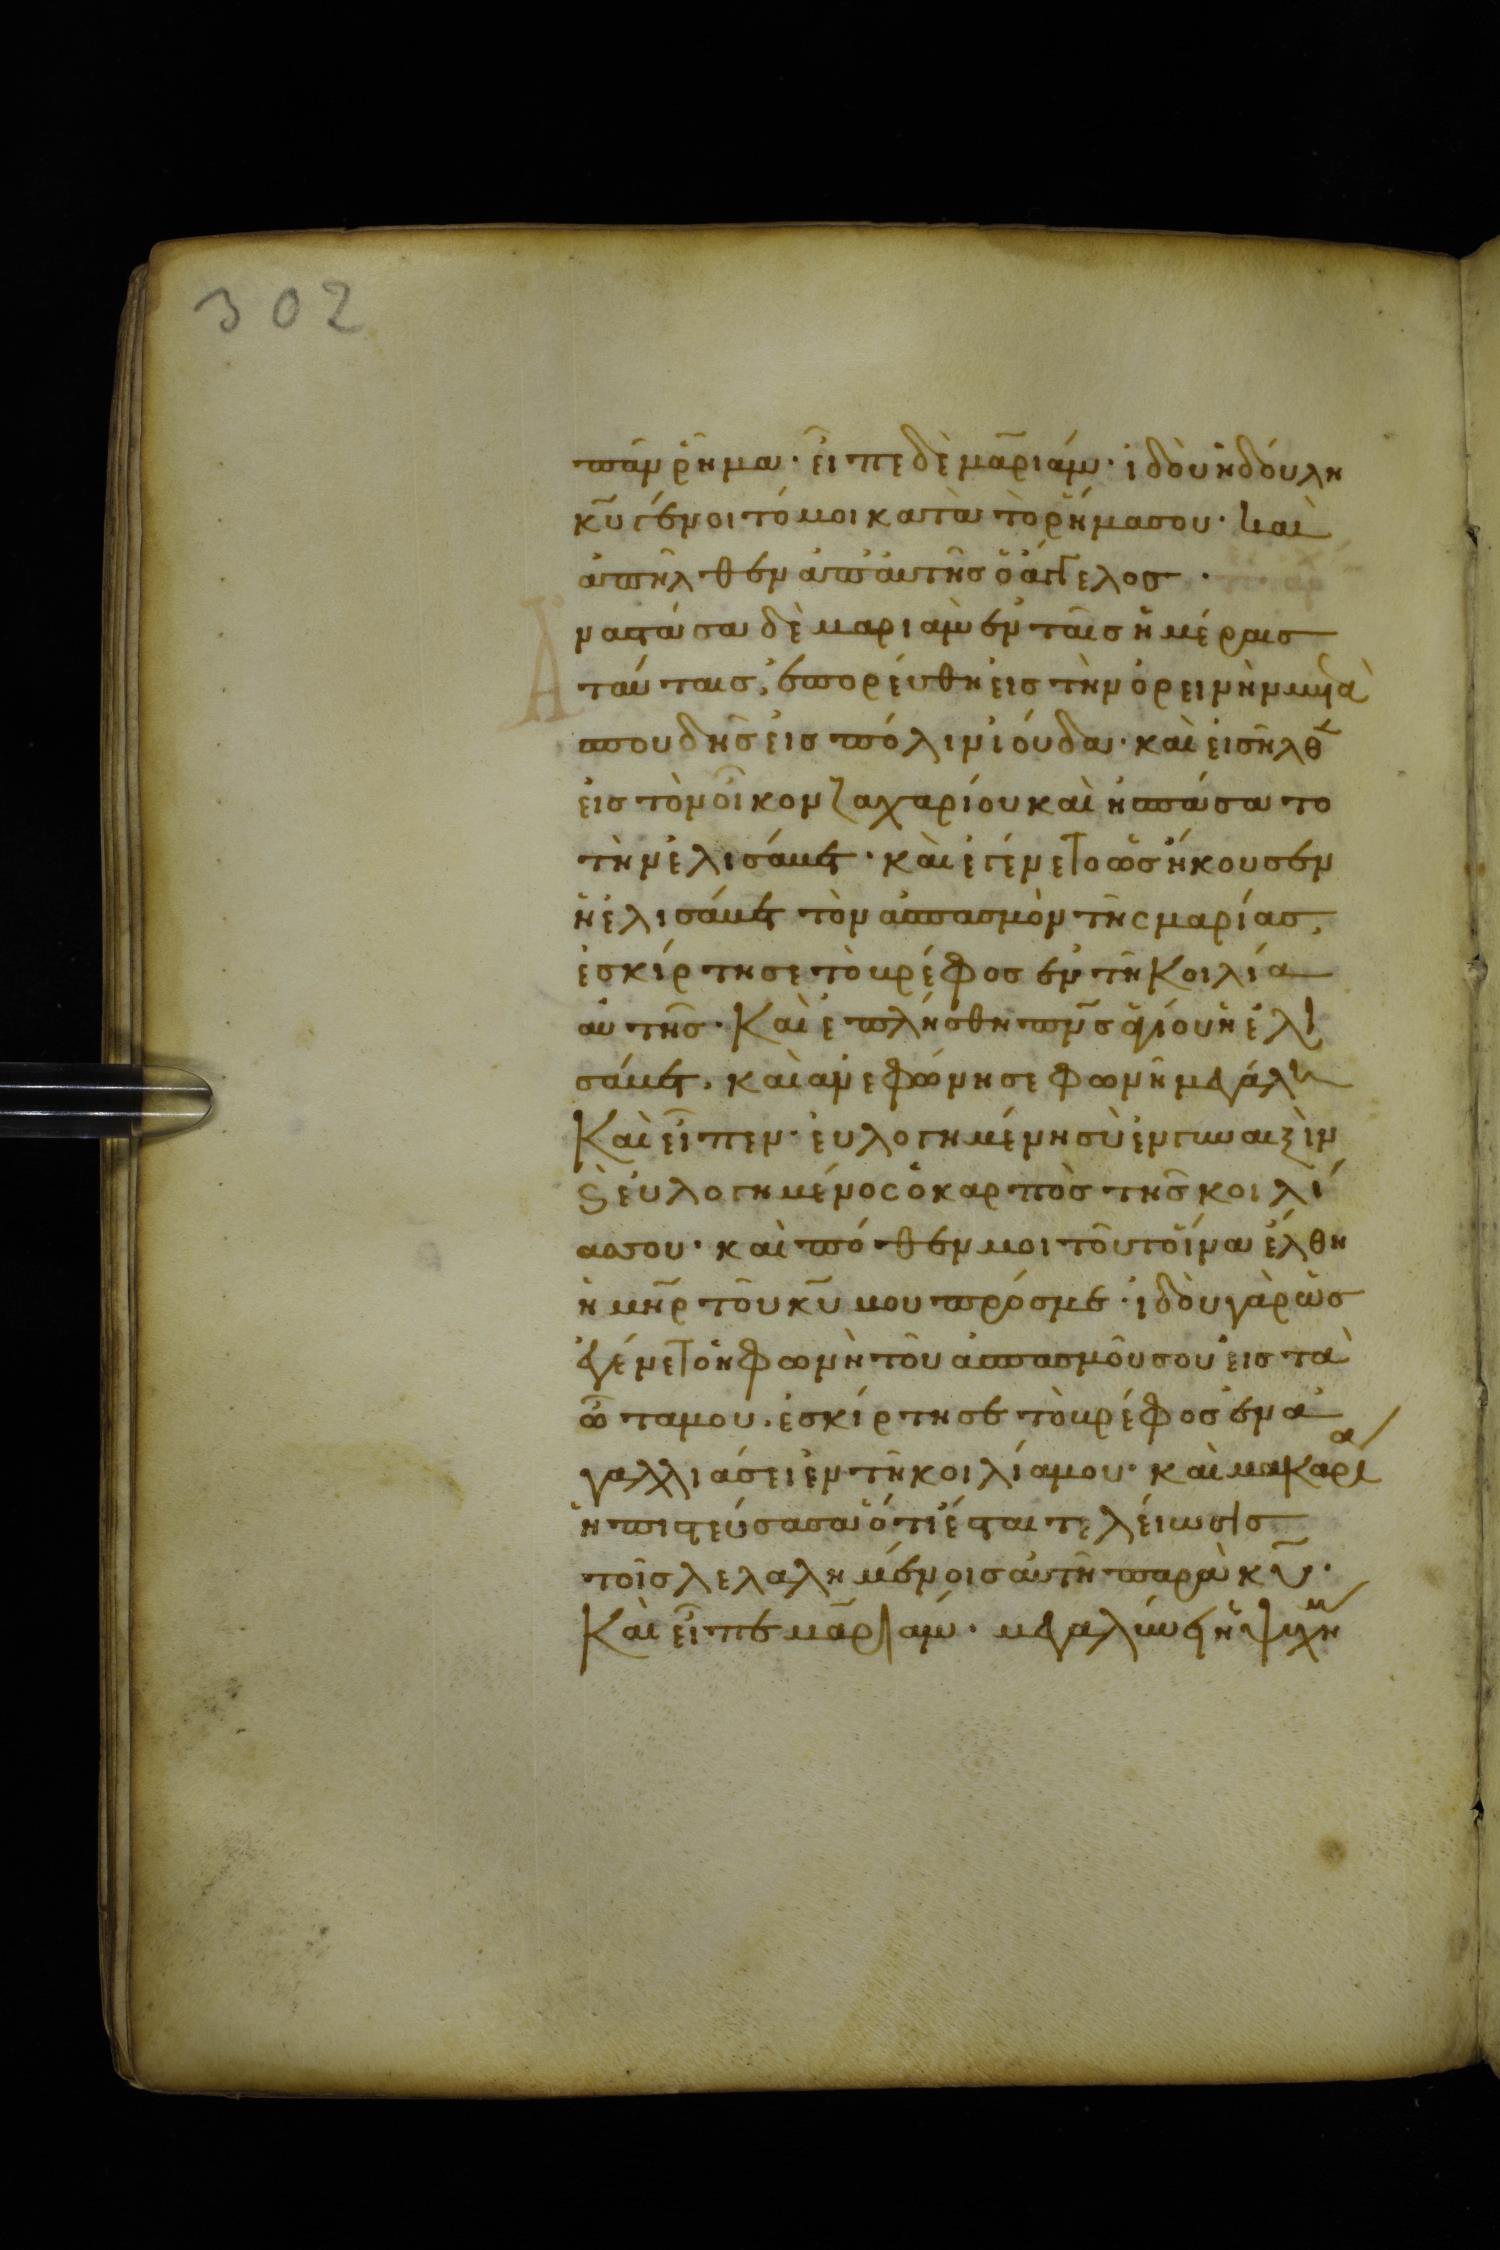 302
πᾶν ῥῆμα· εἶπε δὲ μ̅αριάμ· ἰδοὺ ἡ δούλη
κ̅υ γένοιτό μοι κατὰ τὸ ῥῆμα σου· καὶ
ἀπῆλθεν ἀπ' αὐτῆς ὁ ἄγγελος·
Ἀναστάσα δὲ μαριὰμ ἐν ταῖς ἡμέραις
ταύταις, ἐπορεύθη εἰς τὴν ὀρεινὴν μετὰ
σπουδῆς εἰς πόλιν ἰούδα· καὶ εἰσῆλθε
εἰς τὸν οἶκον ζαχαρίου καὶ ἠσπάσατο
τὴν ἐλισάβετ· καὶ ἐγένετο ὡς ἤκουσεν
ἡ ἐλισάβετ τὸν ἀσπασμὸν τῆς μαρίας,
ἐσκίρτησε τὸ βρέφος ἐν τῇ κοιλία
αὐτῆς· Καὶ ἐπλήσθη π̅ν̅ς ἁγίου ἡ ἐλι
σάβετ, καὶ ἀνεφώνησε φωνῇ μεγάλη
Καὶ εἶπεν· εὐλογημένη σὺ ἐν γυναιξὶν
ϗ εὐλογημένος ὁ καρπὸς τῆς κοιλί
ας σου· καὶ πόθεν μοι τοῦτο ἵνα ἔλθη
ἡ μ̅η̅ρ τοῦ κ̅υ μου πρός με· ἰδοὺ γὰρ ὡς
ἐγένετο ἡ φωνὴ τοῦ ἀσπασμοῦ σου εἰς τὰ
ὦτα μου, ἐσκίρτησε τὸ βρέφος ἐν ἀ
γαλλιάσει ἐν τῇ κοιλία μου· καὶ μακαρία
ἡ πιστεύσασα ὅτι ἔσται τελείωσις
τοῖς λελαλημένοις αὐτῇ παρὰ κ̅υ·
Καὶ εἶπε μ̅αριάμ· μεγαλύνει ἡ ψυχή μ